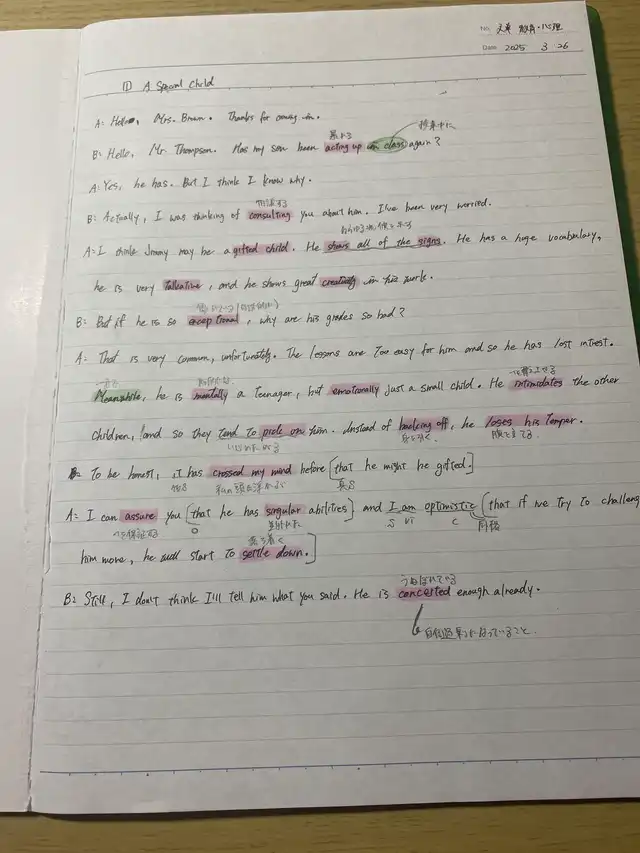 No. 文単 教育・心理
Date 2025 3 26
① A Special Child
A: Hello, Mrs. Brown. Thanks for coming in.
暴れる 授業中に
B: Hello, Mr. Thompson. Has my son been acting up in class again?
A: Yes, he has. But I think I know why.
相談する
B: Actually, I was thinking of consulting you about him. I've been very worried.
A: I think Jimmy may be a gifted child. He shows all of the signs. He has a huge vocabulary,
he is very talkative, and he shows great creativity in his work.
B: But if he is so exceptional, why are his grades so bad?
A: That is very common, unfortunately. The lessons are too easy for him and so he has lost intrest.
一方で
Meanwhile, he is mentally a teenager, but emotionally just a small child. He intimidates the other
children, and so they tend to pick on him. Instead of backing off, he loses his temper.
いじめたがる 身を引く 腹を立てる
B: To be honest, it has crossed my mind before [that he might he gifted.]
仮S 私の頭に浮かぶ 真S
A: I can assure you [that he has singular abilities] and I am optimistic (that if we try to challeng
〜を保証する O 並外れた S Vi C 同格
落ち着く
him more, he will start to settle down.]
うぬぼれている
B: Still, I don't think I'll tell him what you said. He is conceited enough already.
自信過剰になっていること.